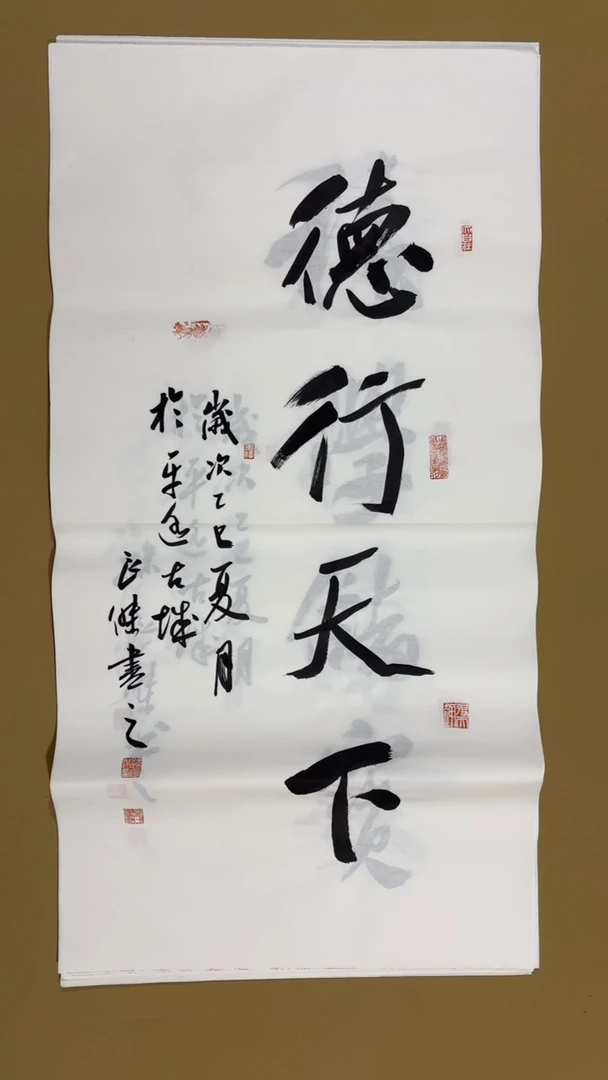 德行天下
歲次乙巳夏月
於平遥古城
長傑書之